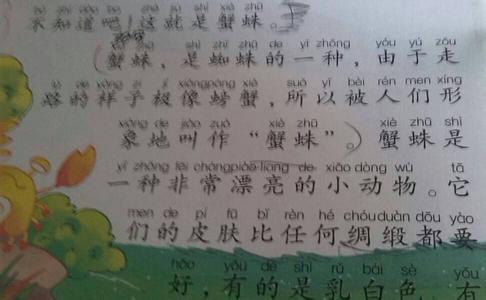 不知道吧！这就是蟹蛛。
zhū shì zhī zhū de yì zhǒng yóu yú zǒu
蟹蛛，是蜘蛛的一种，由于走
lù de yàng zi jí xiàng páng xiè suǒ yǐ bèi rén men xíng
路的样子极像螃蟹，所以被人们形
xiàng de jiào zuò xiè zhū xiè zhū shì
象地叫作“蟹蛛”。蟹蛛是
yì zhǒng fēi cháng piào liang de xiǎo dòng wù tā
一种非常漂亮的小动物。它
men de pí fū bǐ rèn hé chóu duàn dōu yào
们的皮肤比任何绸缎都要
hǎo yǒu de shì rǔ bái sè yǒu
好，有的是乳白色，有